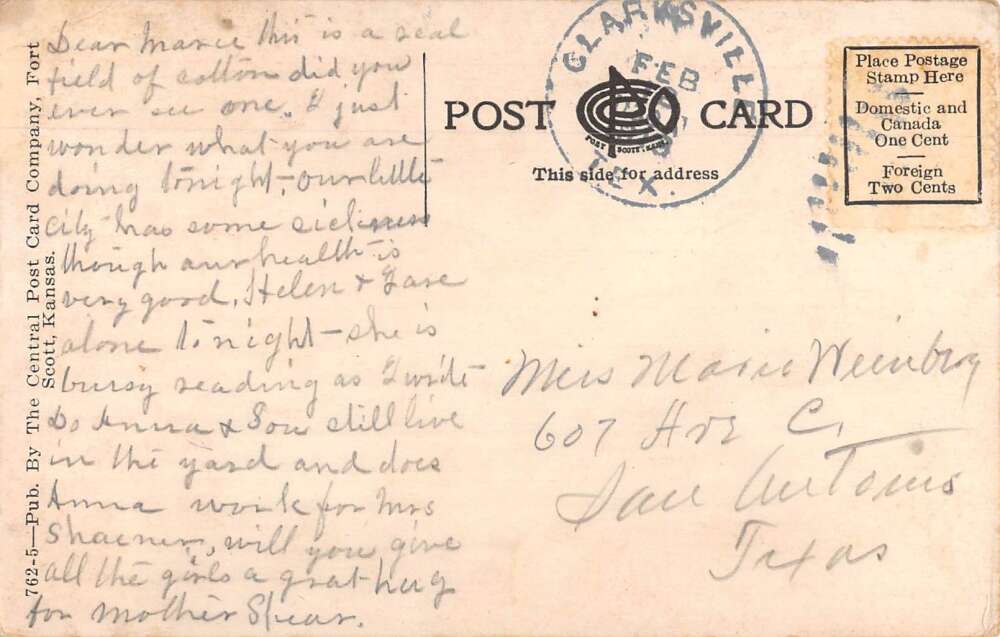 Dear Marie this is a real
field of cotton did you
ever see one. I just
wonder what you are
doing tonight, our little
city has some sickness
though our health is
very good. Helen & I are
alone tonight she is
busy reading as I write
Do Anna & Son still live
in the yard and does
Anna work for Mrs
will you give
all the girls a great hug
for Mother Spear.
762-5—Pub. By The Central Post Card Company, Fort
Scott, Kansas.
POST CARD
POST
SCOTT, KANS.
This side for address
CLARKSVILLE
FEB
TEX.
Place Postage
Stamp Here
Domestic and
Canada
One Cent
Foreign
Two Cents
Miss Marie
607 Ave C,
San Antonio
Texas